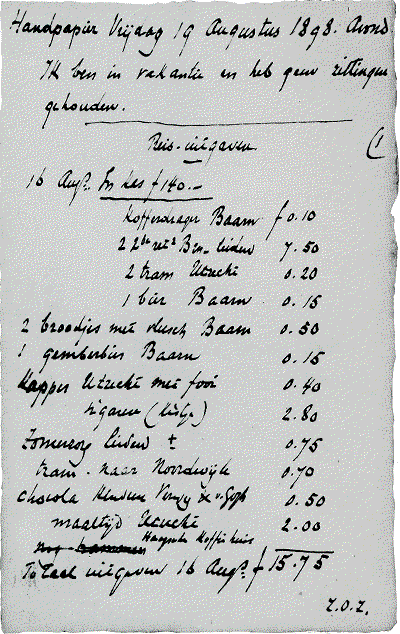 Handpapier Vrijdag 19 Augustus 1898. Avond
Ik ben in vakantie en heb geen zittingen
gehouden.
Reis-uitgaven
(1
16 Augs. In kas f 140.-
Kofferdrager Baarn f 0.10
2 2de Baarn-Leiden 7.50
2 tram Utrecht 0.20
1 bier Baarn 0.15
2 broodjes met vleesch Baarn 0.50
1 gemberbier Baarn 0.15
Kapper Utrecht met fooi 0.40
sigaren (kistje) 2.80
Zomerzorg Leiden ± 0.75
tram naar Noordwijk 0.70
chocola 0.50
maaltijd Utrecht 2.00
Haagsche Koffiehuis
Totaal uitgaven 16 Augs. f 15.75
Z.O.Z.